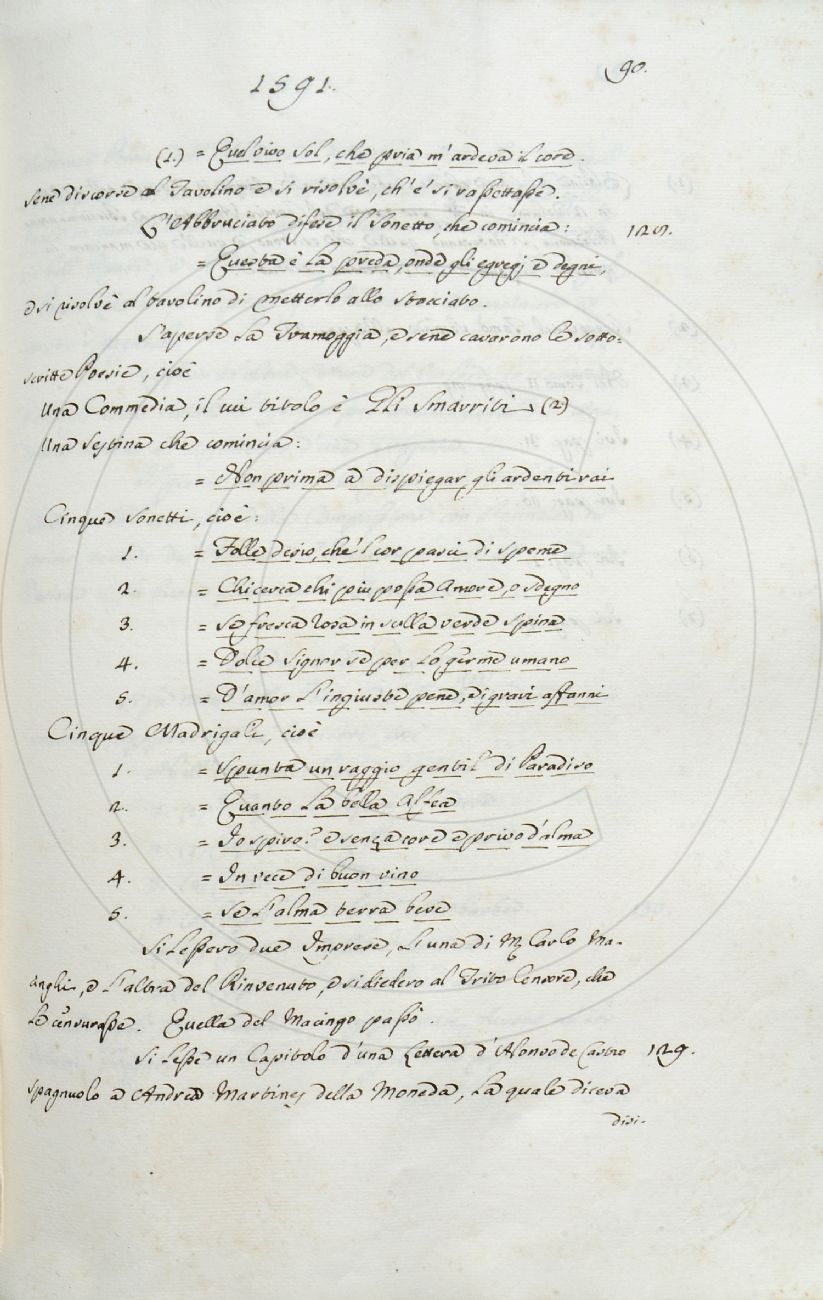 1591.
90.
(1.) = Quel vivo Sol, che pria m'ardeva il core.
sene discorse al Tavolino e si risolvè, ch'e' si rassettasse.
L'Abbruciato difese il Sonetto, che comincia:
= Questa è la preda, onde gli egregj e degni,
e si risolvè al tavolino di metterlo allo stacciato.
S'aperse la Tramoggia, e sene cavarono le sotto=
scritte Poesie, cioè
Una Commedia, il cui titolo è Gli Smarriti (2)
Una Sestina che comincia:
= Non prima a dispiegar gli ardenti rai
Cinque Sonetti, cioè:
1. = Folle desio, che'l cor pasci di speme
2. = Chi cerca chi piu possa Amore, o sdegno
3. = Se fresca rosa in sulla verde spina
4. = Dolce Signor se per lo germe umano
5. = D'amor l'ingiuste pene, e i gravi affanni
Cinque Madrigale, cioè
1. = Spunta un raggio gentil di Paradiso
2. = Quanto la bella Alfea
3. = Io spiro? e senza core e privo d'alma
4. = In vece di buon vino
5. = Se l'alma terra beve
Si lessero due Imprese, l'una di Carlo Ma-
cinghi, e l'altra del Rinvenuto, e si diedero al Trito Censore, che
le censurasse. Quella del Macingo passò.
Si lesse un Capitolo d'una Lettera d'Alonso de Castro 129.
Spagnuolo a Andrea Martines della Moneda, la quale diceva